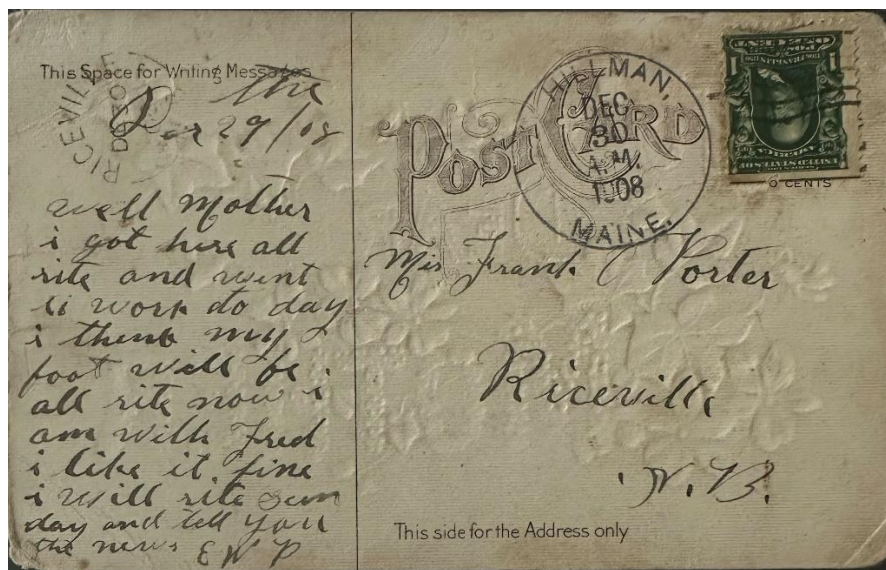 This Space for Writing Messages
RICEVILLE
DE 30
the
Dec 29/08
well Mother
i got here all
rite and went
ti work to day
i think my
foot will be
all rite now i
am with Fred
i like it fine
i will rite sum
day and tell you
the news E W P
POST CARD
HILLMAN,
DEC
30
A.M.
1908
MAINE.
POSTAGE
ONE CENT
1
UNITED STATES OF
AMERICA
CENTS
Mis Frank C Porter
Riceville
N. B.
This side for the Address only